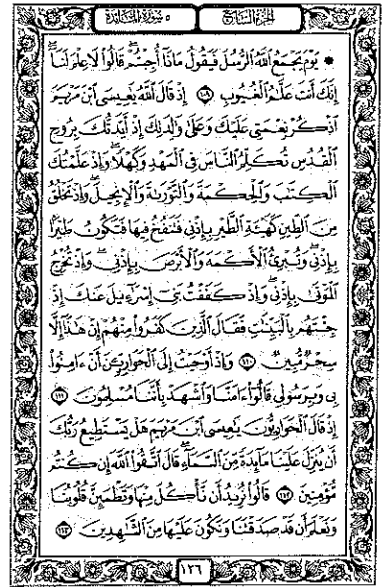 الجزء السابع
٥ سورة المائدة
۞ يَوْمَ يَجْمَعُ ٱللَّهُ ٱلرُّسُلَ فَيَقُولُ مَاذَآ أُجِبْتُمْ ۖ قَالُوا۟ لَا عِلْمَ لَنَآ ۖ
إِنَّكَ أَنتَ عَلَّٰمُ ٱلْغُيُوبِ ١٠٩ إِذْ قَالَ ٱللَّهُ يَٰعِيسَى ٱبْنَ مَرْيَمَ
ٱذْكُرْ نِعْمَتِى عَلَيْكَ وَعَلَىٰ وَٰلِدَتِكَ إِذْ أَيَّدتُّكَ بِرُوحِ
ٱلْقُدُسِ تُكَلِّمُ ٱلنَّاسَ فِى ٱلْمَهْدِ وَكَهْلًا ۖ وَإِذْ عَلَّمْتُكَ
ٱلْكِتَٰبَ وَٱلْحِكْمَةَ وَٱلتَّوْرَىٰةَ وَٱلْإِنجِيلَ ۖ وَإِذْ تَخْلُقُ
مِنَ ٱلطِّينِ كَهَيْـَٔةِ ٱلطَّيْرِ بِإِذْنِى فَتَنفُخُ فِيهَا فَتَكُونُ طَيْرًۢا
بِإِذْنِى ۖ وَتُبْرِئُ ٱلْأَكْمَهَ وَٱلْأَبْرَصَ بِإِذْنِى ۖ وَإِذْ تُخْرِجُ
ٱلْمَوْتَىٰ بِإِذْنِى ۖ وَإِذْ كَفَفْتُ بَنِىٓ إِسْرَٰٓءِيلَ عَنكَ إِذْ
جِئْتَهُم بِٱلْبَيِّنَٰتِ فَقَالَ ٱلَّذِينَ كَفَرُوا۟ مِنْهُمْ إِنْ هَٰذَآ إِلَّا
سِحْرٌ مُّبِينٌ ١١٠ وَإِذْ أَوْحَيْتُ إِلَى ٱلْحَوَارِيِّـۧنَ أَنْ ءَامِنُوا۟
بِى وَبِرَسُولِى قَالُوٓا۟ ءَامَنَّا وَٱشْهَدْ بِأَنَّنَا مُسْلِمُونَ ١١١
إِذْ قَالَ ٱلْحَوَارِيُّونَ يَٰعِيسَى ٱبْنَ مَرْيَمَ هَلْ يَسْتَطِيعُ رَبُّكَ
أَن يُنَزِّلَ عَلَيْنَا مَآئِدَةً مِّنَ ٱلسَّمَآءِ ۖ قَالَ ٱتَّقُوا۟ ٱللَّهَ إِن كُنتُم
مُّؤْمِنِينَ ١١٢ قَالُوا۟ نُرِيدُ أَن نَّأْكُلَ مِنْهَا وَتَطْمَئِنَّ قُلُوبُنَا
وَنَعْلَمَ أَن قَدْ صَدَقْتَنَا وَنَكُونَ عَلَيْهَا مِنَ ٱلشَّٰهِدِينَ ١١٣
١٢٦